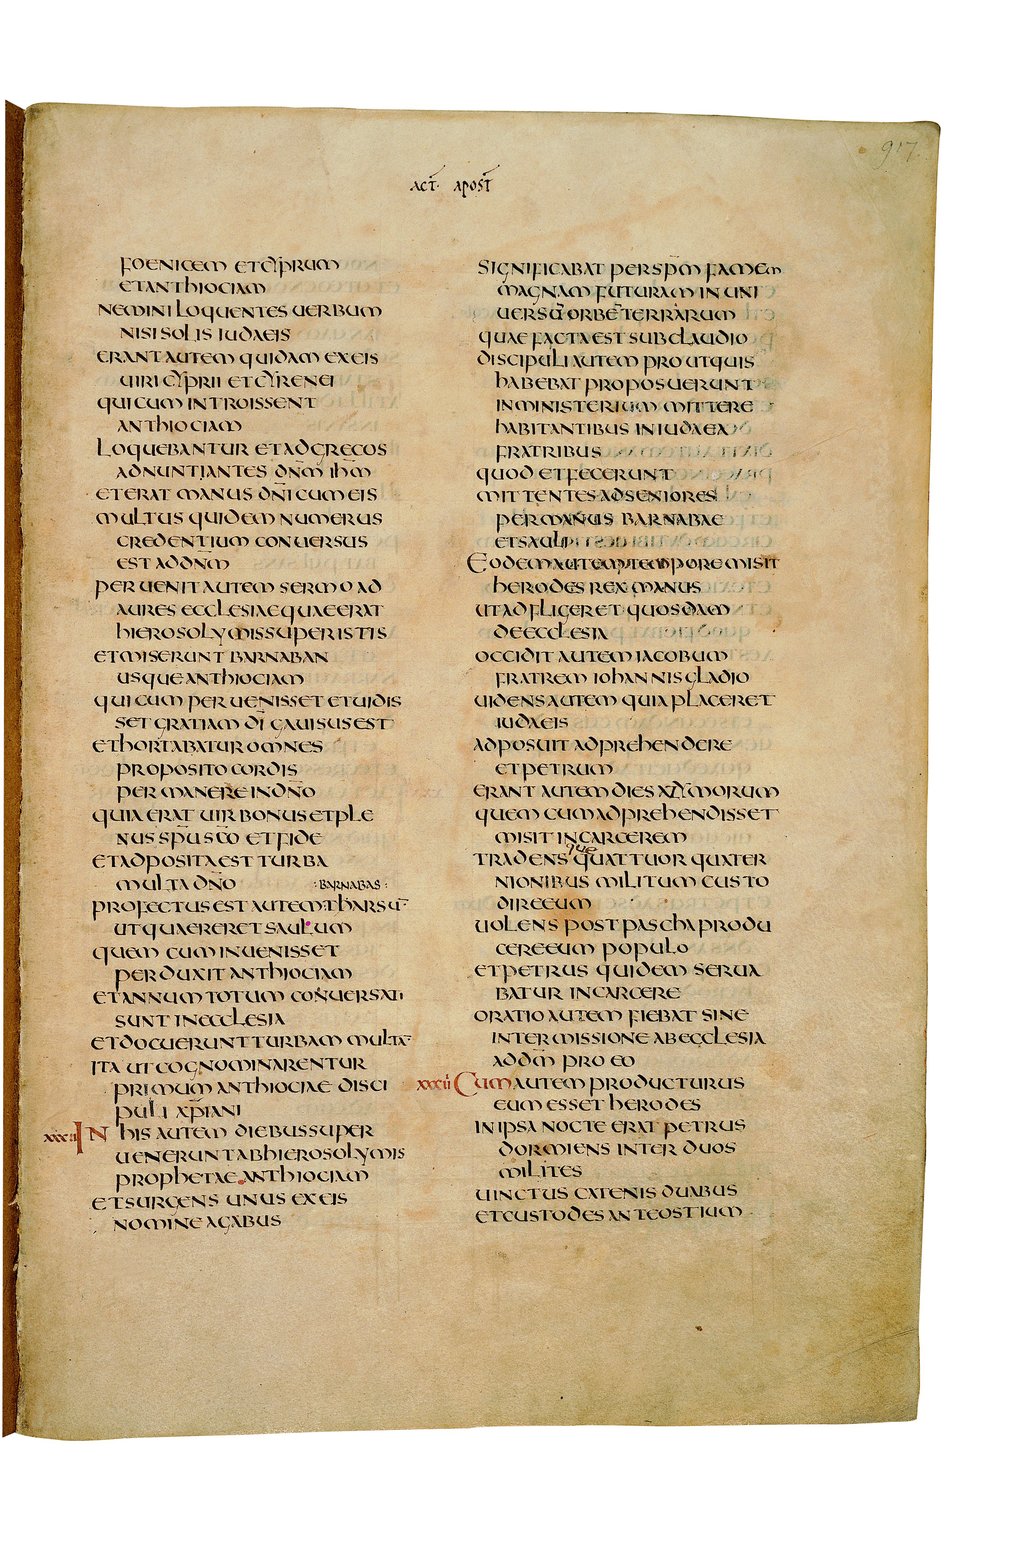 917
ACT̄ APOST̄
FOENICEM ET CYPRUM
ET ANTHIOCIAM
NEMINI LOQUENTES UERBUM
NISI SOLIS IUDAEIS
ERANT AUTEM QUIDAM EX EIS
UIRI CYPRII ET CYRENEI
QUI CUM INTROISSENT
ANTHIOCIAM
LOQUEBANTUR ET AD GRECOS
ADNUNTIANTES DN̄M IHM̄
ET ERAT MANUS DN̄I CUM EIS
MULTUS QUIDEM NUMERUS
CREDENTIUM CONUERSUS
EST AD DN̄M
PERUENIT AUTEM SERMO AD
AURES ECCLESIAE QUAE ERAT
HIEROSOLYMIS SUPER ISTIS
ET MISERUNT BARNABAN
USQUE ANTHIOCIAM
QUI CUM PERUENISSET ET UIDIS
SET GRATIAM DĪ GAUISUS EST
ET HORTABATUR OMNES
PROPOSITO CORDIS
PERMANERE IN DN̄O
QUIA ERAT UIR BONUS ET PLE
NUS SPŪ SC̄O ET FIDE
ET ADPOSITA EST TURBA
MULTA DN̄O :BARNABAS:
PROFECTUS EST AUTEM THARSŪ
UT QUAERERET SAULUM
QUEM CUM INUENISSET
PERDUXIT ANTHIOCIAM
ET ANNUM TOTUM CONUERSATI
SUNT IN ECCLESIA
ET DOCUERUNT TURBAM MULTĀ
ITA UT COGNOMINARENTUR
PRIMUM ANTHIOCIAE DISCI
PULI XP̄IANI
XXXI IN HIS AUTEM DIEBUS SUPER
UENERUNT AB HIEROSOLYMIS
PROPHETAE ANTHIOCIAM
ET SURGENS UNUS EX EIS
NOMINE AGABUS
SIGNIFICABAT PER SPM̄ FAMEM
MAGNAM FUTURAM IN UNI
UERSŪ ORBĒ TERRARUM
QUAE FACTA EST SUB CLAUDIO
DISCIPULI AUTEM PROUT QUIS
HABEBAT PROPOSUERUNT
IN MINISTERIUM MITTERE
HABITANTIBUS IN IUDAEA
FRATRIBUS
QUOD ET FECERUNT
MITTENTES AD SENIORES
PER MANUS BARNABAE
ET SAULI
EODEM AUTEM TEMPORE MISIT
HERODES REX MANUS
UT ADFLIGERET QUOSDAM
DE ECCLESIA
OCCIDIT AUTEM IACOBUM
FRATREM IOHANNIS GLADIO
UIDENS AUTEM QUIA PLACERET
IUDAEIS
ADPOSUIT ADPREHENDERE
ET PETRUM
ERANT AUTEM DIES AZYMORUM
QUEM CUM ADPREHENDISSET
MISIT IN CARCEREM
TRADENS que QUATTUOR QUATER
NIONIBUS MILITUM CUSTO
DIRE EUM
UOLENS POST PASCHA PRODU
CERE EUM POPULO
ET PETRUS QUIDEM SERUA
BATUR IN CARCERE
ORATIO AUTEM FIEBAT SINE
INTERMISSIONE AB ECCLESIA
AD DM̄ PRO EO
XXXII CUM AUTEM PRODUCTURUS
EUM ESSET HERODES
IN IPSA NOCTE ERAT PETRUS
DORMIENS INTER DUOS
MILITES
UINCTUS CATENIS DUABUS
ET CUSTODES ANTE OSTIUM